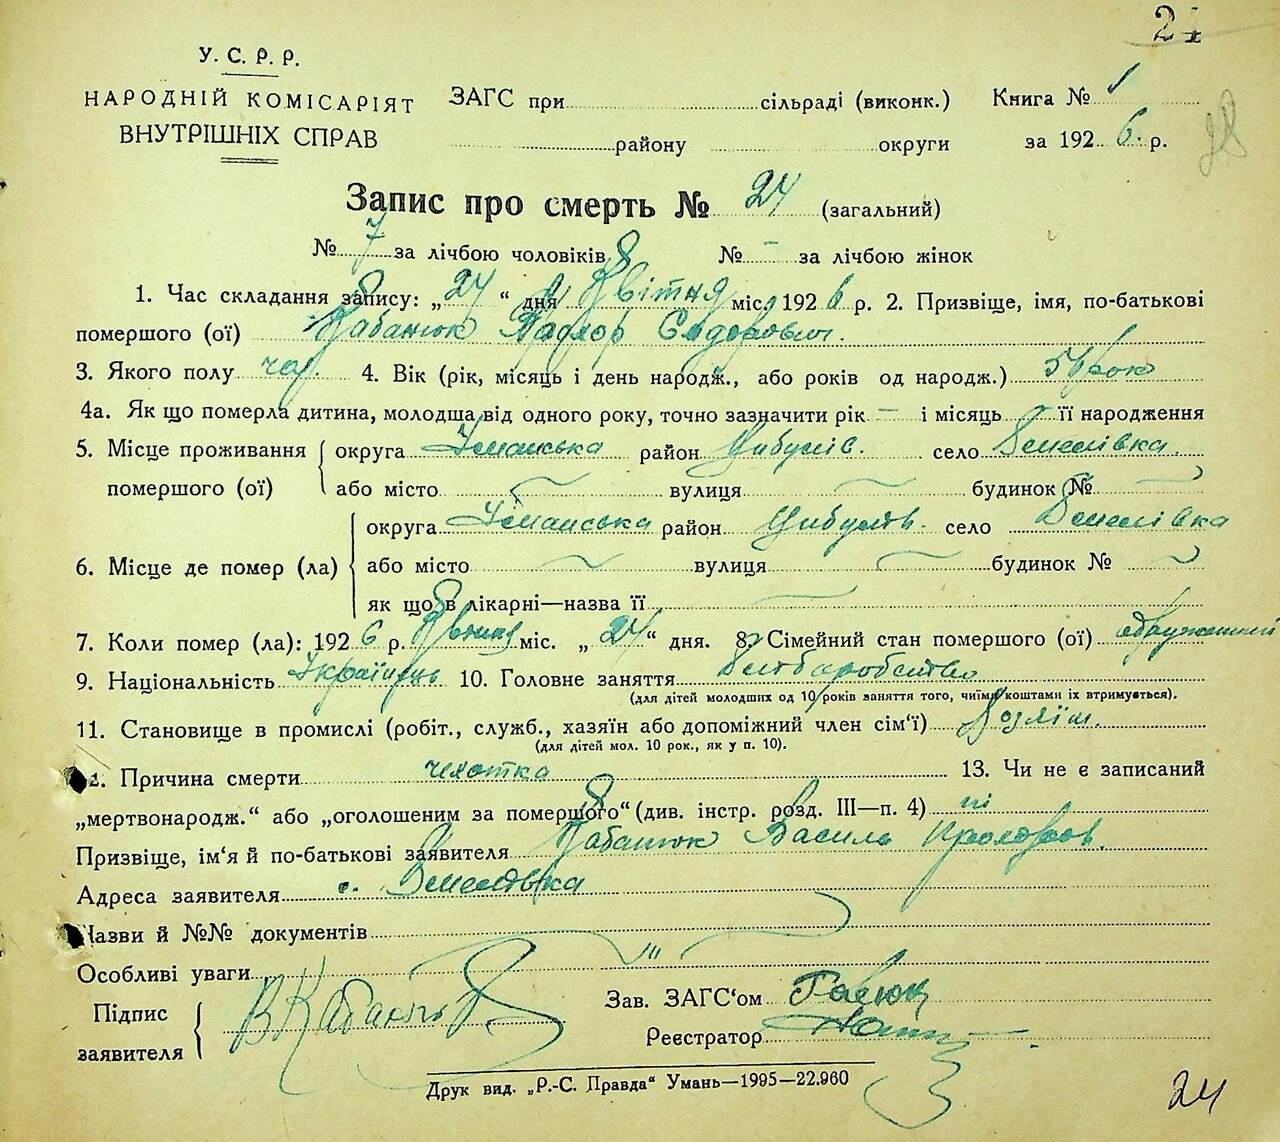 24
У. С. Р. Р.
НАРОДНІЙ КОМІСАРІЯТ
ВНУТРІШНІХ СПРАВ
ЗАГС при сільраді (виконк.) Книга № 1
району округи за 1926 р.
28
Запис про смерть № 24 (загальний)
№ 7 за лічбою чоловіків № - за лічбою жінок
1. Час складання запису: „24“ дня Квітня міс. 1926 р. 2. Призвіще, імя, по-батькові
помершого (ої) Кабанюк Прохор Сидорович.
3. Якого полу чол. 4. Вік (рік, місяць і день народж., або років од народж.) рок
4а. Як що померла дитина, молодша від одного року, точно зазначити рік — і місяць — її народження
5. Місце проживання помершого (ої) округа Уманська район Цибулів. село
або місто вулиця будинок №
6. Місце де помер (ла) округа Уманська район Цибулів. село
або місто вулиця будинок №
як що в лікарні—назва її
7. Коли помер (ла): 1926 р. Квітня міс. „24“ дня. 8. Сімейний стан помершого (ої) одружений
9. Національність Українець 10. Головне заняття Хліборобство
(для дітей молодших од 10 років заняття того, чиїми коштами їх втримується).
11. Становище в промислі (робіт., служб., хазяїн або допоміжний член сім‘ї) Хозяїн.
(для дітей мол. 10 рок., як у п. 10).
12. Причина смерти чехотка 13. Чи не є записаний
„мертвонародж.“ або „оголошеним за помершого“ (див. інстр. розд. III—п. 4) ні
Призвіще, ім‘я й по-батькові заявителя Кабанюк Василь Прохоров.
Адреса заявителя с.
Назви й №№ документів
Особливі уваги
Підпис заявителя В Кабанюк
Зав. ЗАГС‘ом
Реєстратор
Друк вид. „Р.-С. Правда“ Умань—1995—22.960
24